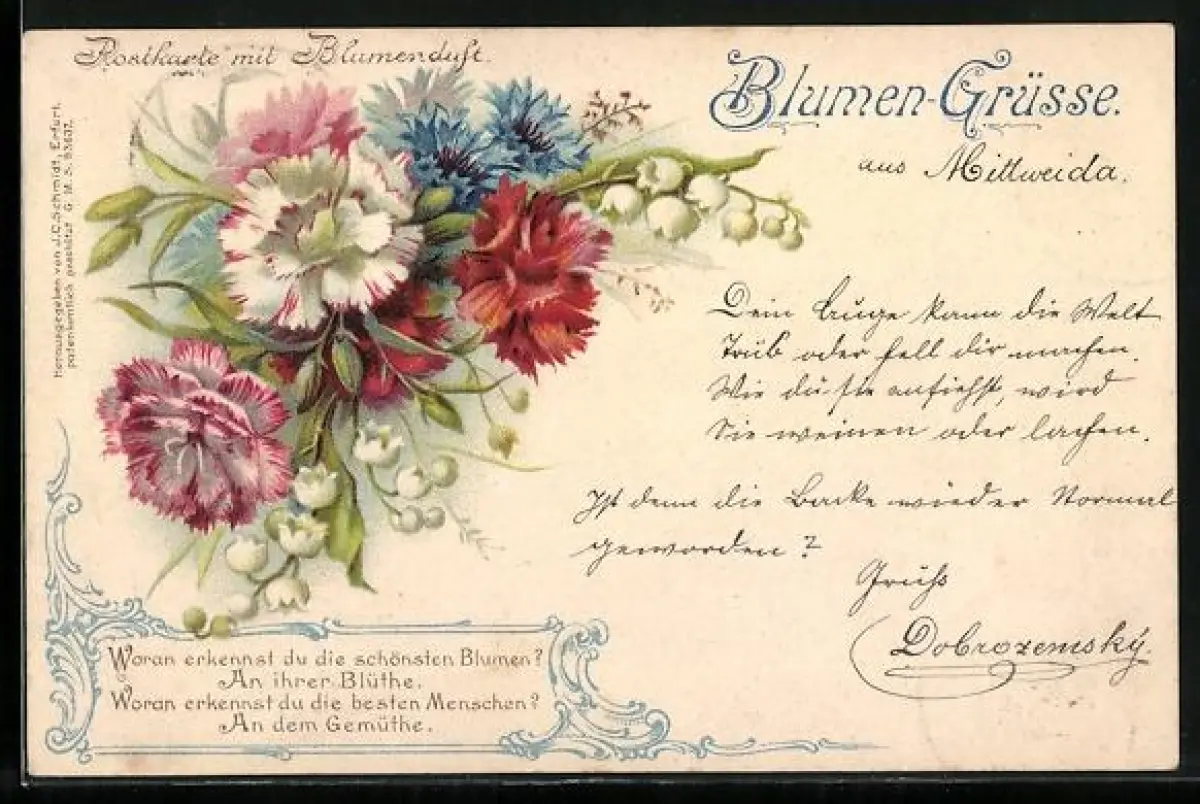 Postkarte mit Blumenduft.
Blumen-Grüsse.
aus Mittweida.
Herausgegeben von J.C. Schmidt, Erfurt.
patentamtlich geschützt G. M. S.
Dein Auge kann die Welt
Trüb oder hell dir machen.
Wie du sie ansiehst, wird
Sie weinen oder lachen.
Ist denn die Backe wieder Normal
geworden?
Gruß
Dobrozemský.
Woran erkennst du die schönsten Blumen?
An ihrer Blüthe.
Woran erkennst du die besten Menschen?
An dem Gemüthe.